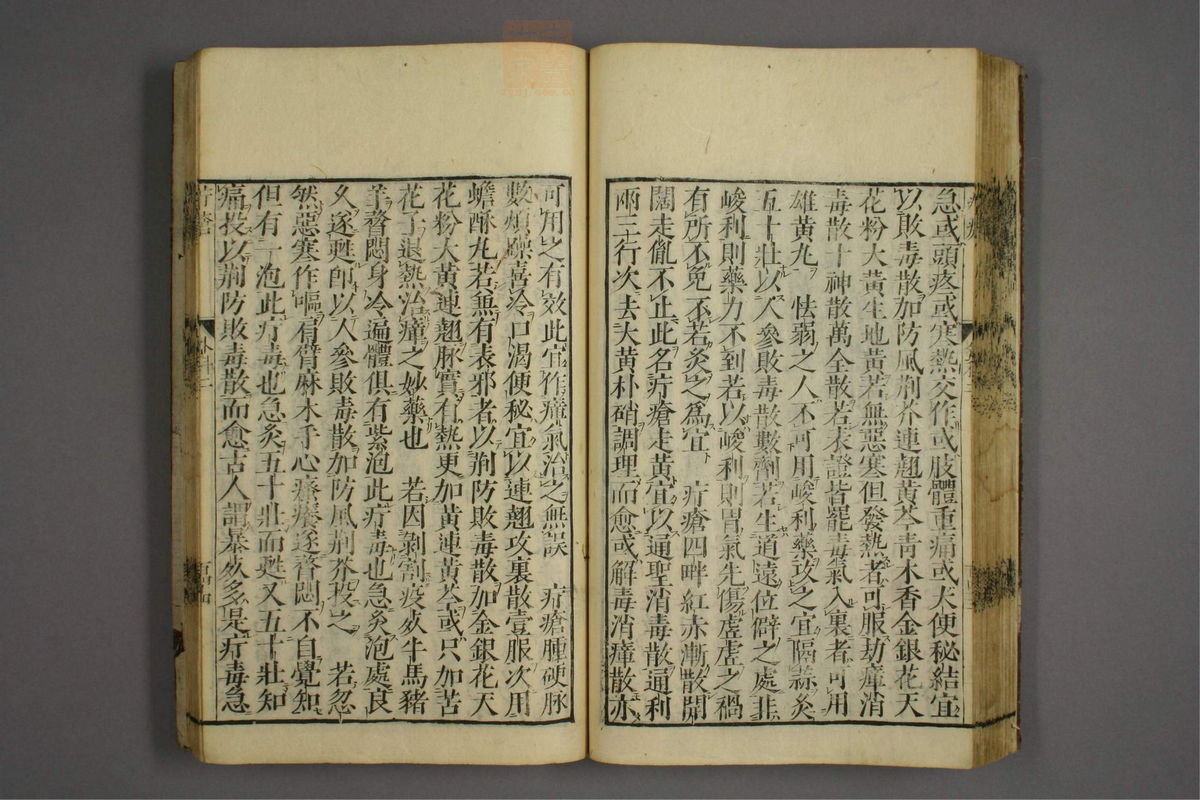 急或頭疼或寒熱交作或肢體重痛或大便秘結宜
以敗毒散加防風荆芥連翹黃芩青木香金銀花天
花粉大黃生地黃若無惡寒但發熱者可服劫瘴消
毒散十神散萬全散若表證皆罷毒氣入裏者可用
雄黃丸 怯弱之人不可用峻利藥攻之宜隔蒜灸
五十壯以人參敗毒散數劑若生道遠位僻之處非
峻利則藥力不到若以峻利則胃氣先傷虛虛之禍
有所不免不若灸之爲宜 疔瘡四畔紅赤漸散開
闊走亂不止此名疔瘡走黃宜以通聖消毒散通利
兩三行次去大黃朴硝調理而愈或解毒消瘴散亦
可用之有效此宜作瘴氣治之無誤 疔瘡腫硬脉
數煩燥喜冷口渴便秘宜以連翹攻裏散壹服次用
蟾酥丸若無有表邪者以荆防敗毒散加金銀花天
花粉大黃連翹脉實有熱更加黃連黃芩或只加苦
花子退熱治瘴之妙藥也 若因剝割疫死牛馬猪
羊瞀悶身冷遍體俱有紫泡此疔毒也急灸泡處良
久遂甦即以人參敗毒散加防風荆芥投之 若忽
然惡寒作嘔肩臂麻木手心瘙癢遂瞀悶不自覺知
但有一泡此疔毒也急灸五十壯而甦又五十壯知
痛投以荆防敗毒散而愈古人謂暴死多是疔毒急